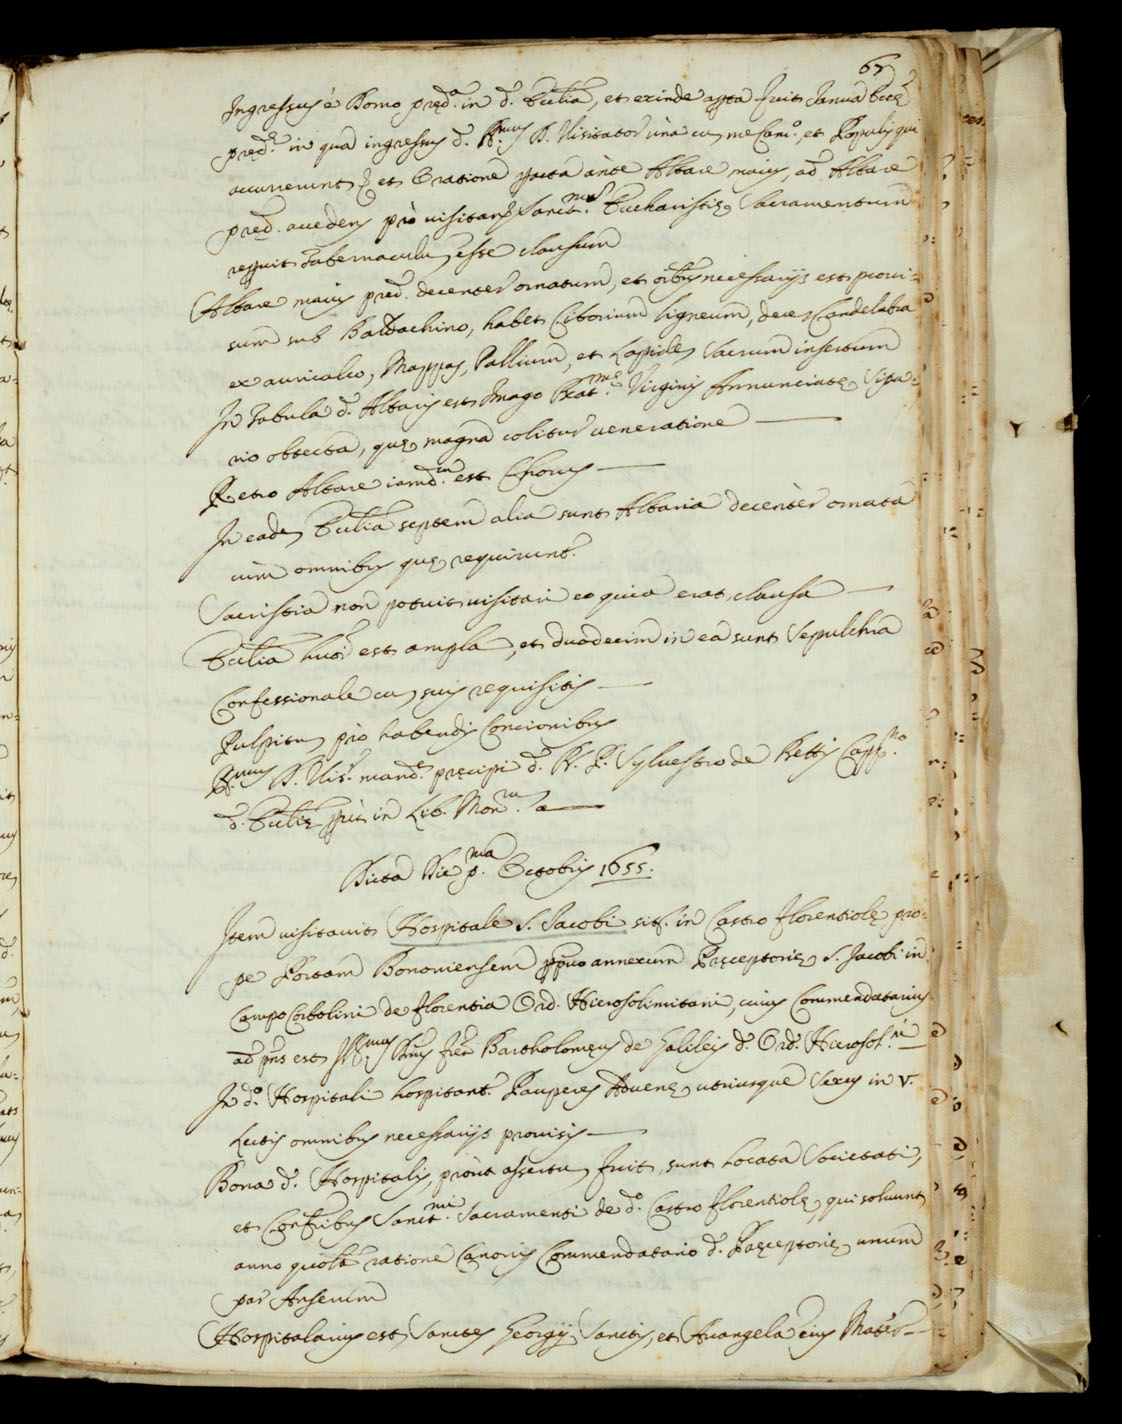 67
Ingressus è Domo pred.ᵃ in d. Ecclia, et exinde apta fuit Janua Eccl.
pred.ᵉ in qua ingressus d. R.mus D. Visitator una cu me Canc.º et Populis qui
accurrerunt, et Oratione facta ante Altare maius, ad Altare
pred. accedens prò visitan Sanct.mum Eucharistię Sacramentum
repperit Tabernaculu esse clausum
Altare maius pred. decenter ornatum, et oibus necessarijs est provi=
sum sub Baldachino, habet Ciborium ligneum, dece Candelabra
ex auricalco, Mappas, Pallium, et Lapidem Sacrum insertum
In Tabula d. Altaris est Imago Beat.mę Virginis Annunciatę Sipa=
rio obtecta, quę magna colitur veneratione
Retro Altare iamd.m est Chorus
In eadem Ecclia septem alia sunt Altaria decenter ornata
cum omnibus quę requirunt.
Sacristia non potuit visitari eo quia erat clausa
Ecclia huôi est ampla, et duodecim in ea sunt Sepulchra
Confessionale cu suis requisitis
Pulpitu prò habendis Concionibus
R.mus D. Vis.r mand. pręcipi d. R. P. Sylvestro de Bettis Capp.no
d. Ecclię put in Lib. Mon.m
Dicta Die p.ma Octobris 1655.
Item visitavit Hospitale S. Jacobi sit. in Castro Florentiolę pro=
pe Portam Bononiensem ppuo annexum Pręceptorię S. Jacobi in
Campo Corbolini de Florentia Ord. Hierosolimitani, cuius Commendatarius
ad pns est Ill.mus Dnus frer Bartholomęus de Galileis d. Ord. Hierosol.ni
In d.º Hospitali hospitant. Pauperes Advenę utriusque Sexus in V.
Lectis omnibus necessarijs provisis
Bona d. Hospitalis, prout assertu fuit, sunt locata Societati,
et Confribus Sanct.mi Sacramenti de d.º Castro Florentiolę, qui solvunt
anno quolt ratione Canonis Commendatario d. Pręceptorię unum
par Anserum
Hospitalarius est Sanctes Georgij Sanctis, et Avangela eius Mater